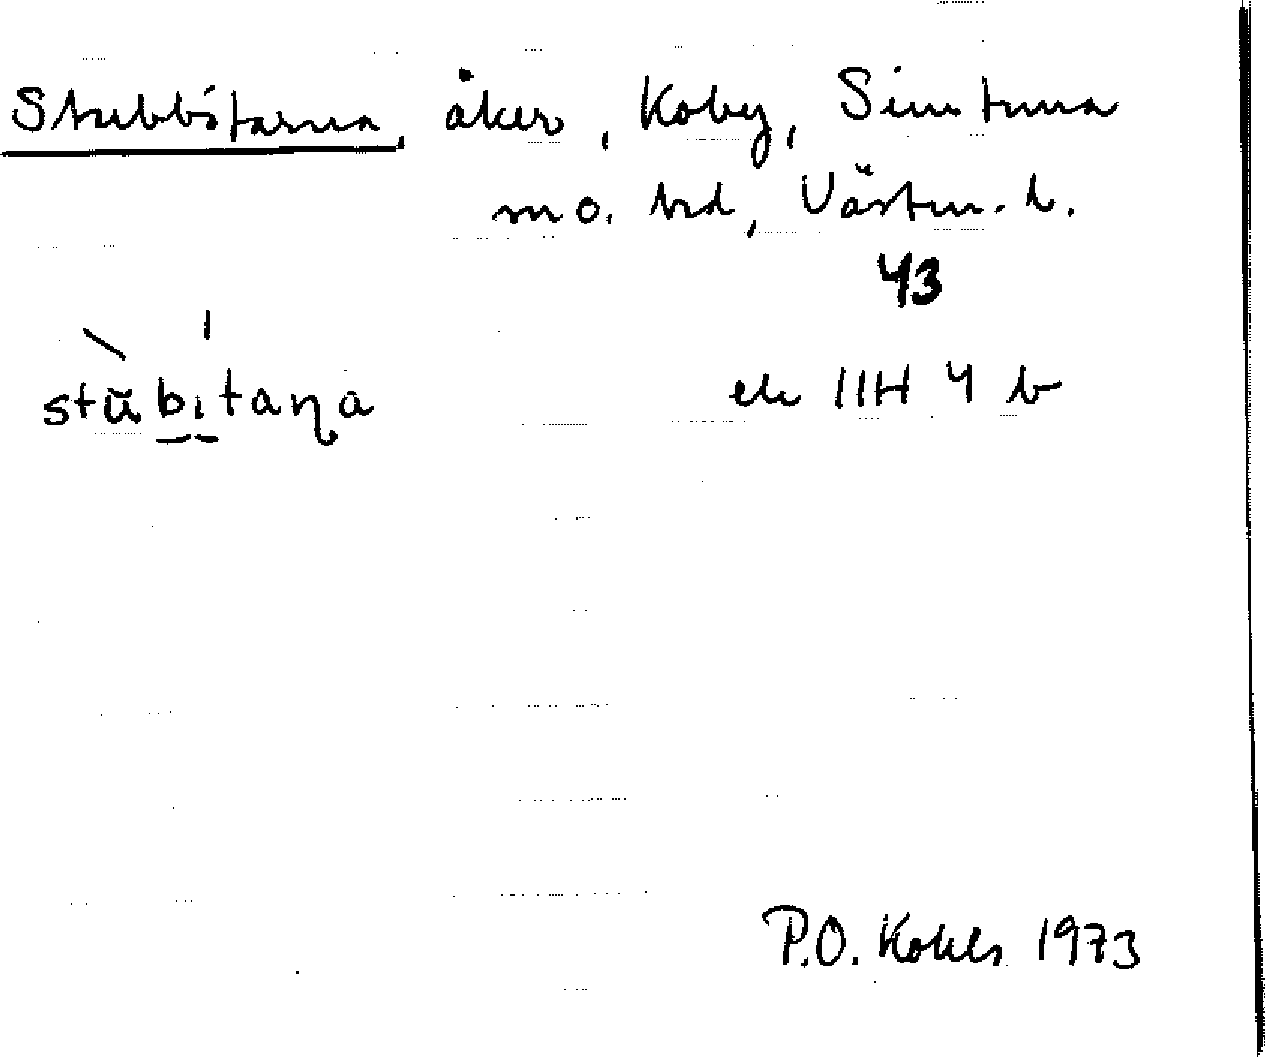 Stubbitarna, åker, Koby, Simtuna
sn o. hd, Västm. l.
43
stŭbıtaηa
ek 11H 4 b
P.O. Kohls 1973